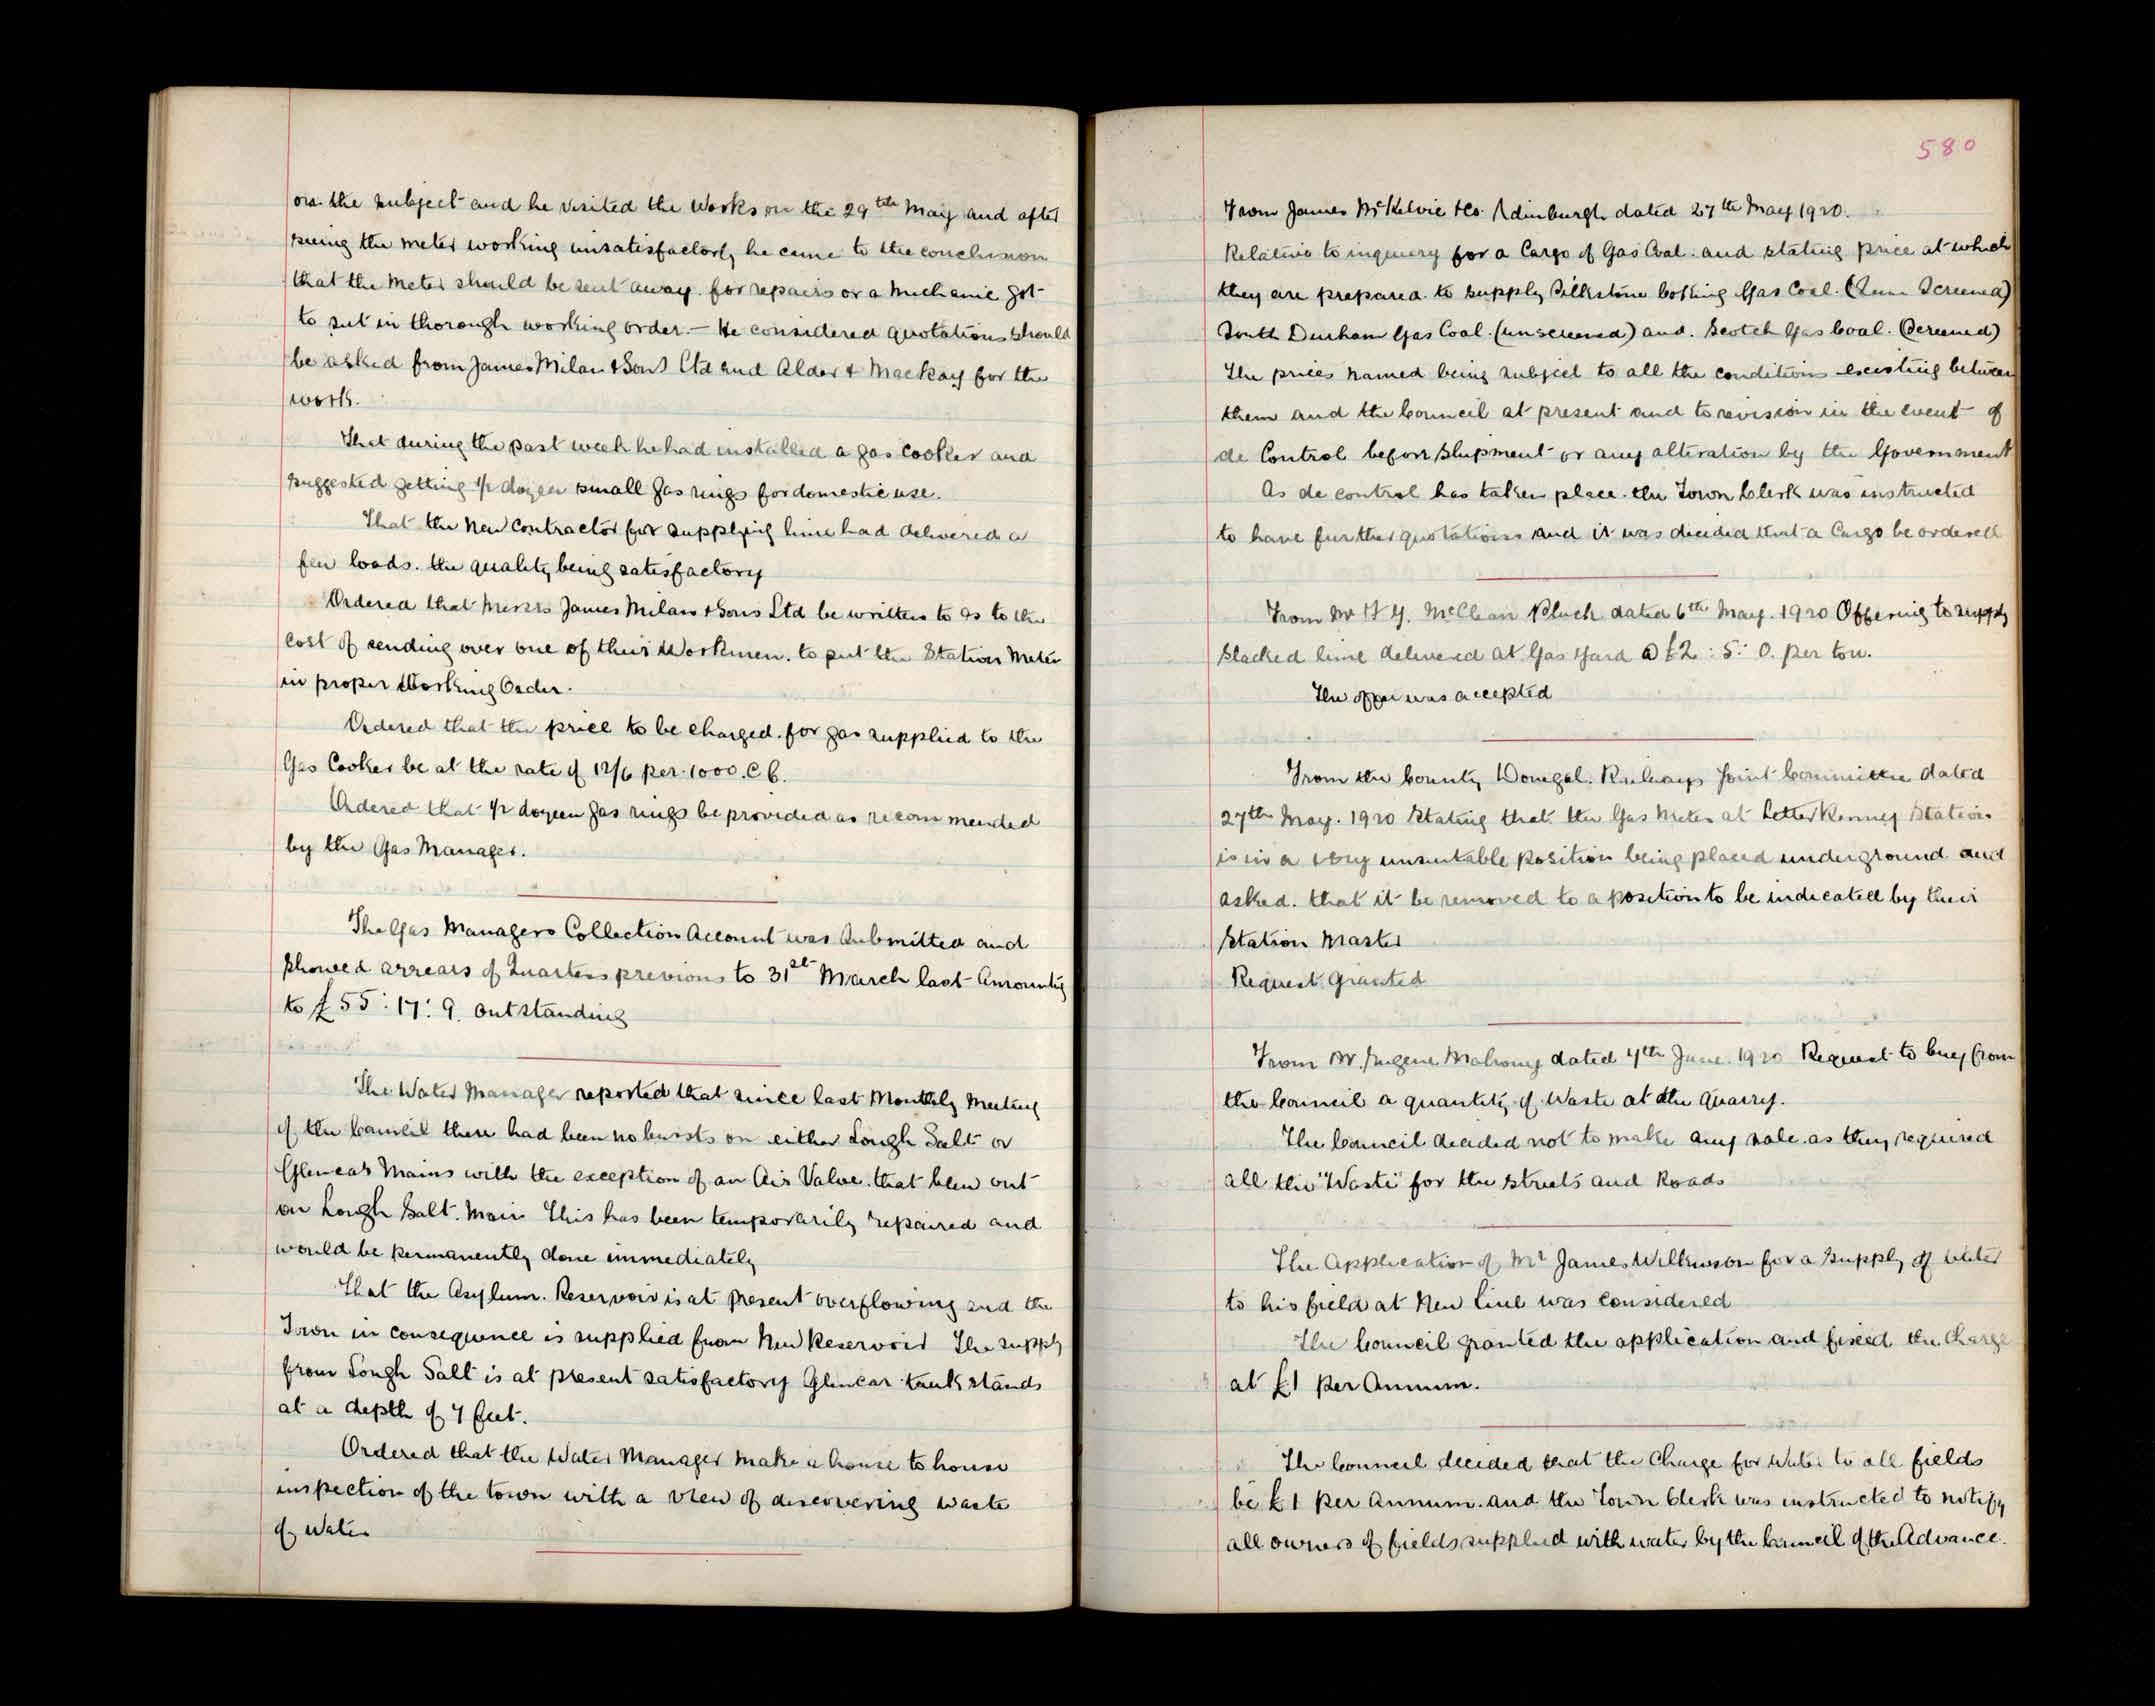 on the subject and he visited the Works on the 29th May and after
seeing the meter working unsatisfactory he came to the conclusion
that the Meter should be sent away for repairs or a Mechanic got
to put in thorough working order. — He considered quotations should
be asked from James Milan & Sons Ltd and Alder & Mackay for the
work.
That during the past week he had installed a gas cooker and
suggested getting 1/2 dozen small gas rings for domestic use.
That the new contractor for supplying lime had delivered a
few loads. the quality being satisfactory
Ordered that Messrs James Milan & Sons Ltd be written to as to the
cost of sending over one of their Workmen. to put the Station Meter
in proper Working Order.
Ordered that the price to be charged for gas supplied to the
Gas Cooker be at the rate of 12/6 per 1000. C f.
Ordered that 1/2 dozen gas rings be provided as recommended
by the Gas Manager.
The Gas Managers Collection Account was Submitted and
showed arrears of Quarters previous to 31st March last Amounting
to £55 : 17 : 9. outstanding
The Water Manager reported that since last Monthly Meeting
of the Council there had been no bursts on either Lough Salt or
Glencar Mains with the exception of an Air Valve that blew out
on Lough Salt. Main This has been temporarily repaired and
would be permanently done immediately
That the Asylum. Reservoir is at present overflowing and the
Town in consequence is supplied from New Reservoir The supply
from Lough Salt is at present satisfactory Glencar tank stands
at a depth of 7 feet.
Ordered that the Water Manager make a house to house
inspection of the town with a view of discovering waste
of water
580
From James McKelvie & Co. Edinburgh dated 27th May 1920.
Relative to inquiry for a Cargo of Gas Coal. and stating price at which
they are prepared to supply Silkstone Coking Gas Coal. (Screened)
South Durham Gas Coal. (unscreened) and. Scotch Gas Coal. (Screened)
The prices named being subject to all the conditions existing between
them and the Council at present and to revision in the event of
de Control before shipment or any alteration by the Government
As de control has taken place. the Town Clerk was instructed
to have further quotations and it was decided that a Cargo be ordered
From Mr McClean Pluck dated 6th May. 1920 Offering to supply
slacked lime delivered at Gas Yard @ £2 : 5 : 0. per ton.
The offer was accepted
From the County Donegal. Railways Joint Committee dated
27th May. 1920 stating that the Gas Meter at Letterkenny Station
is in a very unsuitable position being placed underground and
asked. that it be removed to a position to be indicated by their
Station Master
Request Granted
From Mr. Eugene Mahony dated 7th June. 1920 Request to buy from
the Council a quantity of Waste at the Quarry.
The Council decided not to make any sale. as they required
all the "Waste" for the streets and Roads
The Application of Mr James Wilkinson for a supply of water
to his field at New Line was considered
The Council granted the application and fixed the Charge
at £1 per Annum.
The Council decided that the Charge for Water to all fields
be £1 per Annum. and the Town Clerk was instructed to notify
all owners of fields supplied with water by the Council of the Advance.